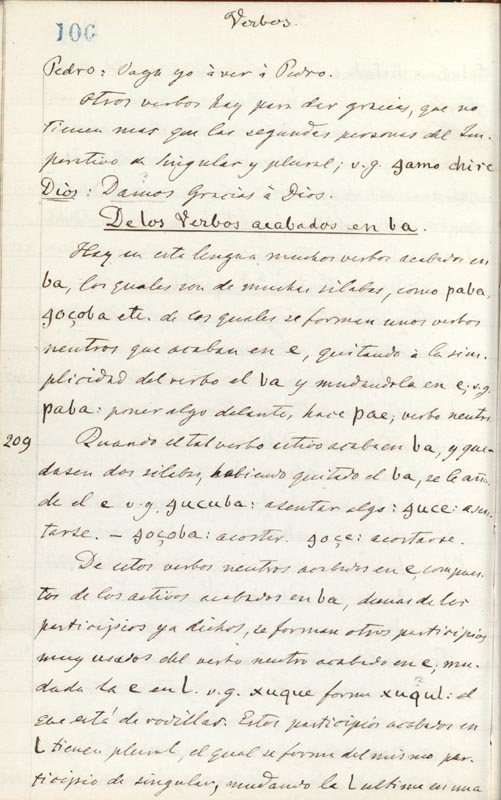 106
Verbos.
Pedro: Vaya yo à ver à Pedro.
Otros verbos hay para dar gracias, que no
tienen mas que las segundas personas del Im-
perativo de Singular y plural; v.g. gamo chire
Dios: Damos Gracias à Dios.
De los Verbos acabados en ba.
Hay en esta lengua muchos verbos acabados en
ba, los quales son de muchas silabas, como paba,
goçoba etc. de los quales se forman unos verbos
neutros que acaban en e, quitando à la sim-
plicidad del verbo el ba y mudandola en e; v.g.
paba: poner algo delante, hace pae; verbo neutro
209 Quando el tal verbo activo acaba en ba, y que-
dasen dos silabas, habiendo quitado el ba, se le aña-
de el e v.g. gucuba: asentar algo: guce: asen-
tarse. – goçoba: acostar. goçe: acostarse.
De estos verbos neutros acabados en e, compues-
tos de los activos acabados en ba, demas de los
participios ya dichos, se forman otros participios
muy usados del verbo neutro acabado en e; mu-
dada la e en l. v.g. xuque forma xuqul: el
que está de rodillas. Estos participios acabados en
l tienen plural, el qual se forma del mismo par-
ticipio de singular, mudando la l ultima en una